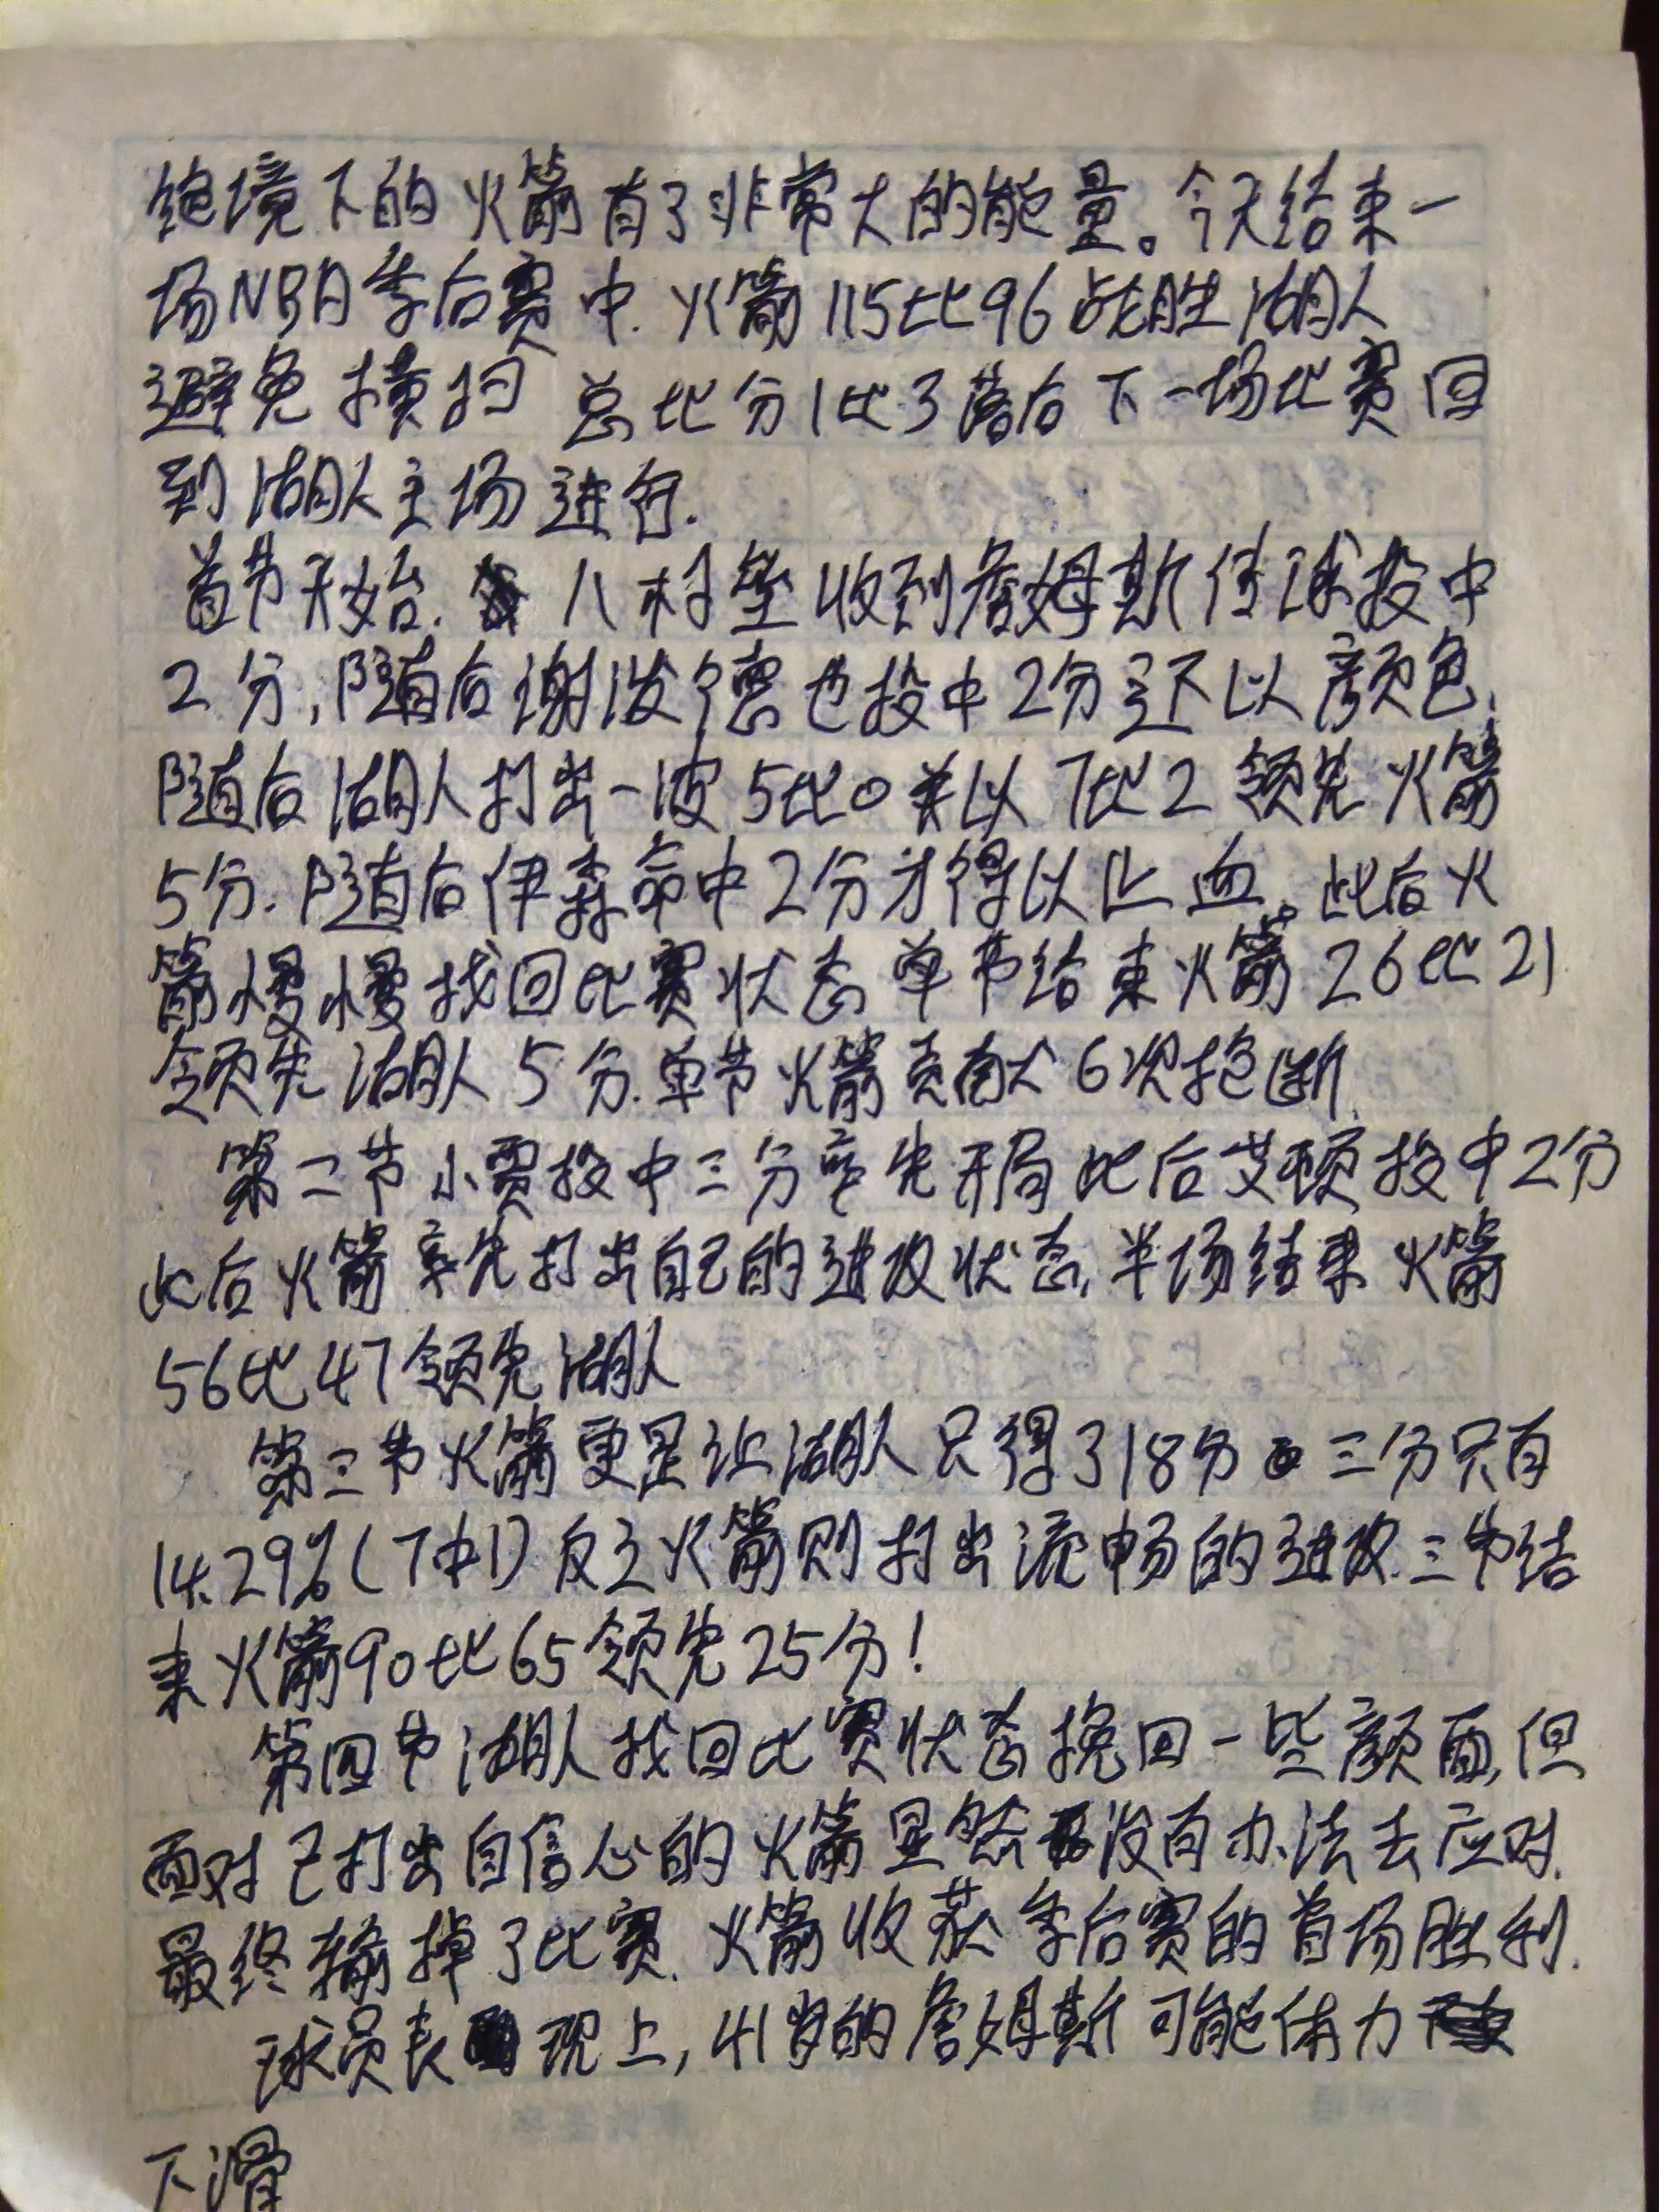 绝境下的火箭有了非常大的能量。今天结束一
场NBA季后赛中.火箭115比96战胜湖人
避免横扫 总比分1比3落后下一场比赛回
到湖人主场进行.
首节开始.八村塁收到詹姆斯传球投中
2分,随后谢泼德也投中2分还以颜色,
随后湖人打出一波5比0并以7比2领先火箭
5分.随后伊森命中2分才得以止血。此后火
箭慢慢找回比赛状态单节结束火箭26比21
领先湖人5分.单节火箭贡献6次抢断.
第二节小贾投中三分率先开局此后艾顿投中2分
此后火箭率先打出自己的进攻状态,半场结束火箭
56比47领先湖人
第三节火箭更是让湖人只得了18分三分只有
14.29%(7中1)反之火箭则打出流畅的进攻.三节结
束火箭90比65领先25分!
第四节湖人找回比赛状态挽回一些颜面,但
面对已打出自信心的火箭显然没有办法去应对.
最终输掉了比赛.火箭收获季后赛的首场胜利.
球员表现上,41岁的詹姆斯可能体力
下滑